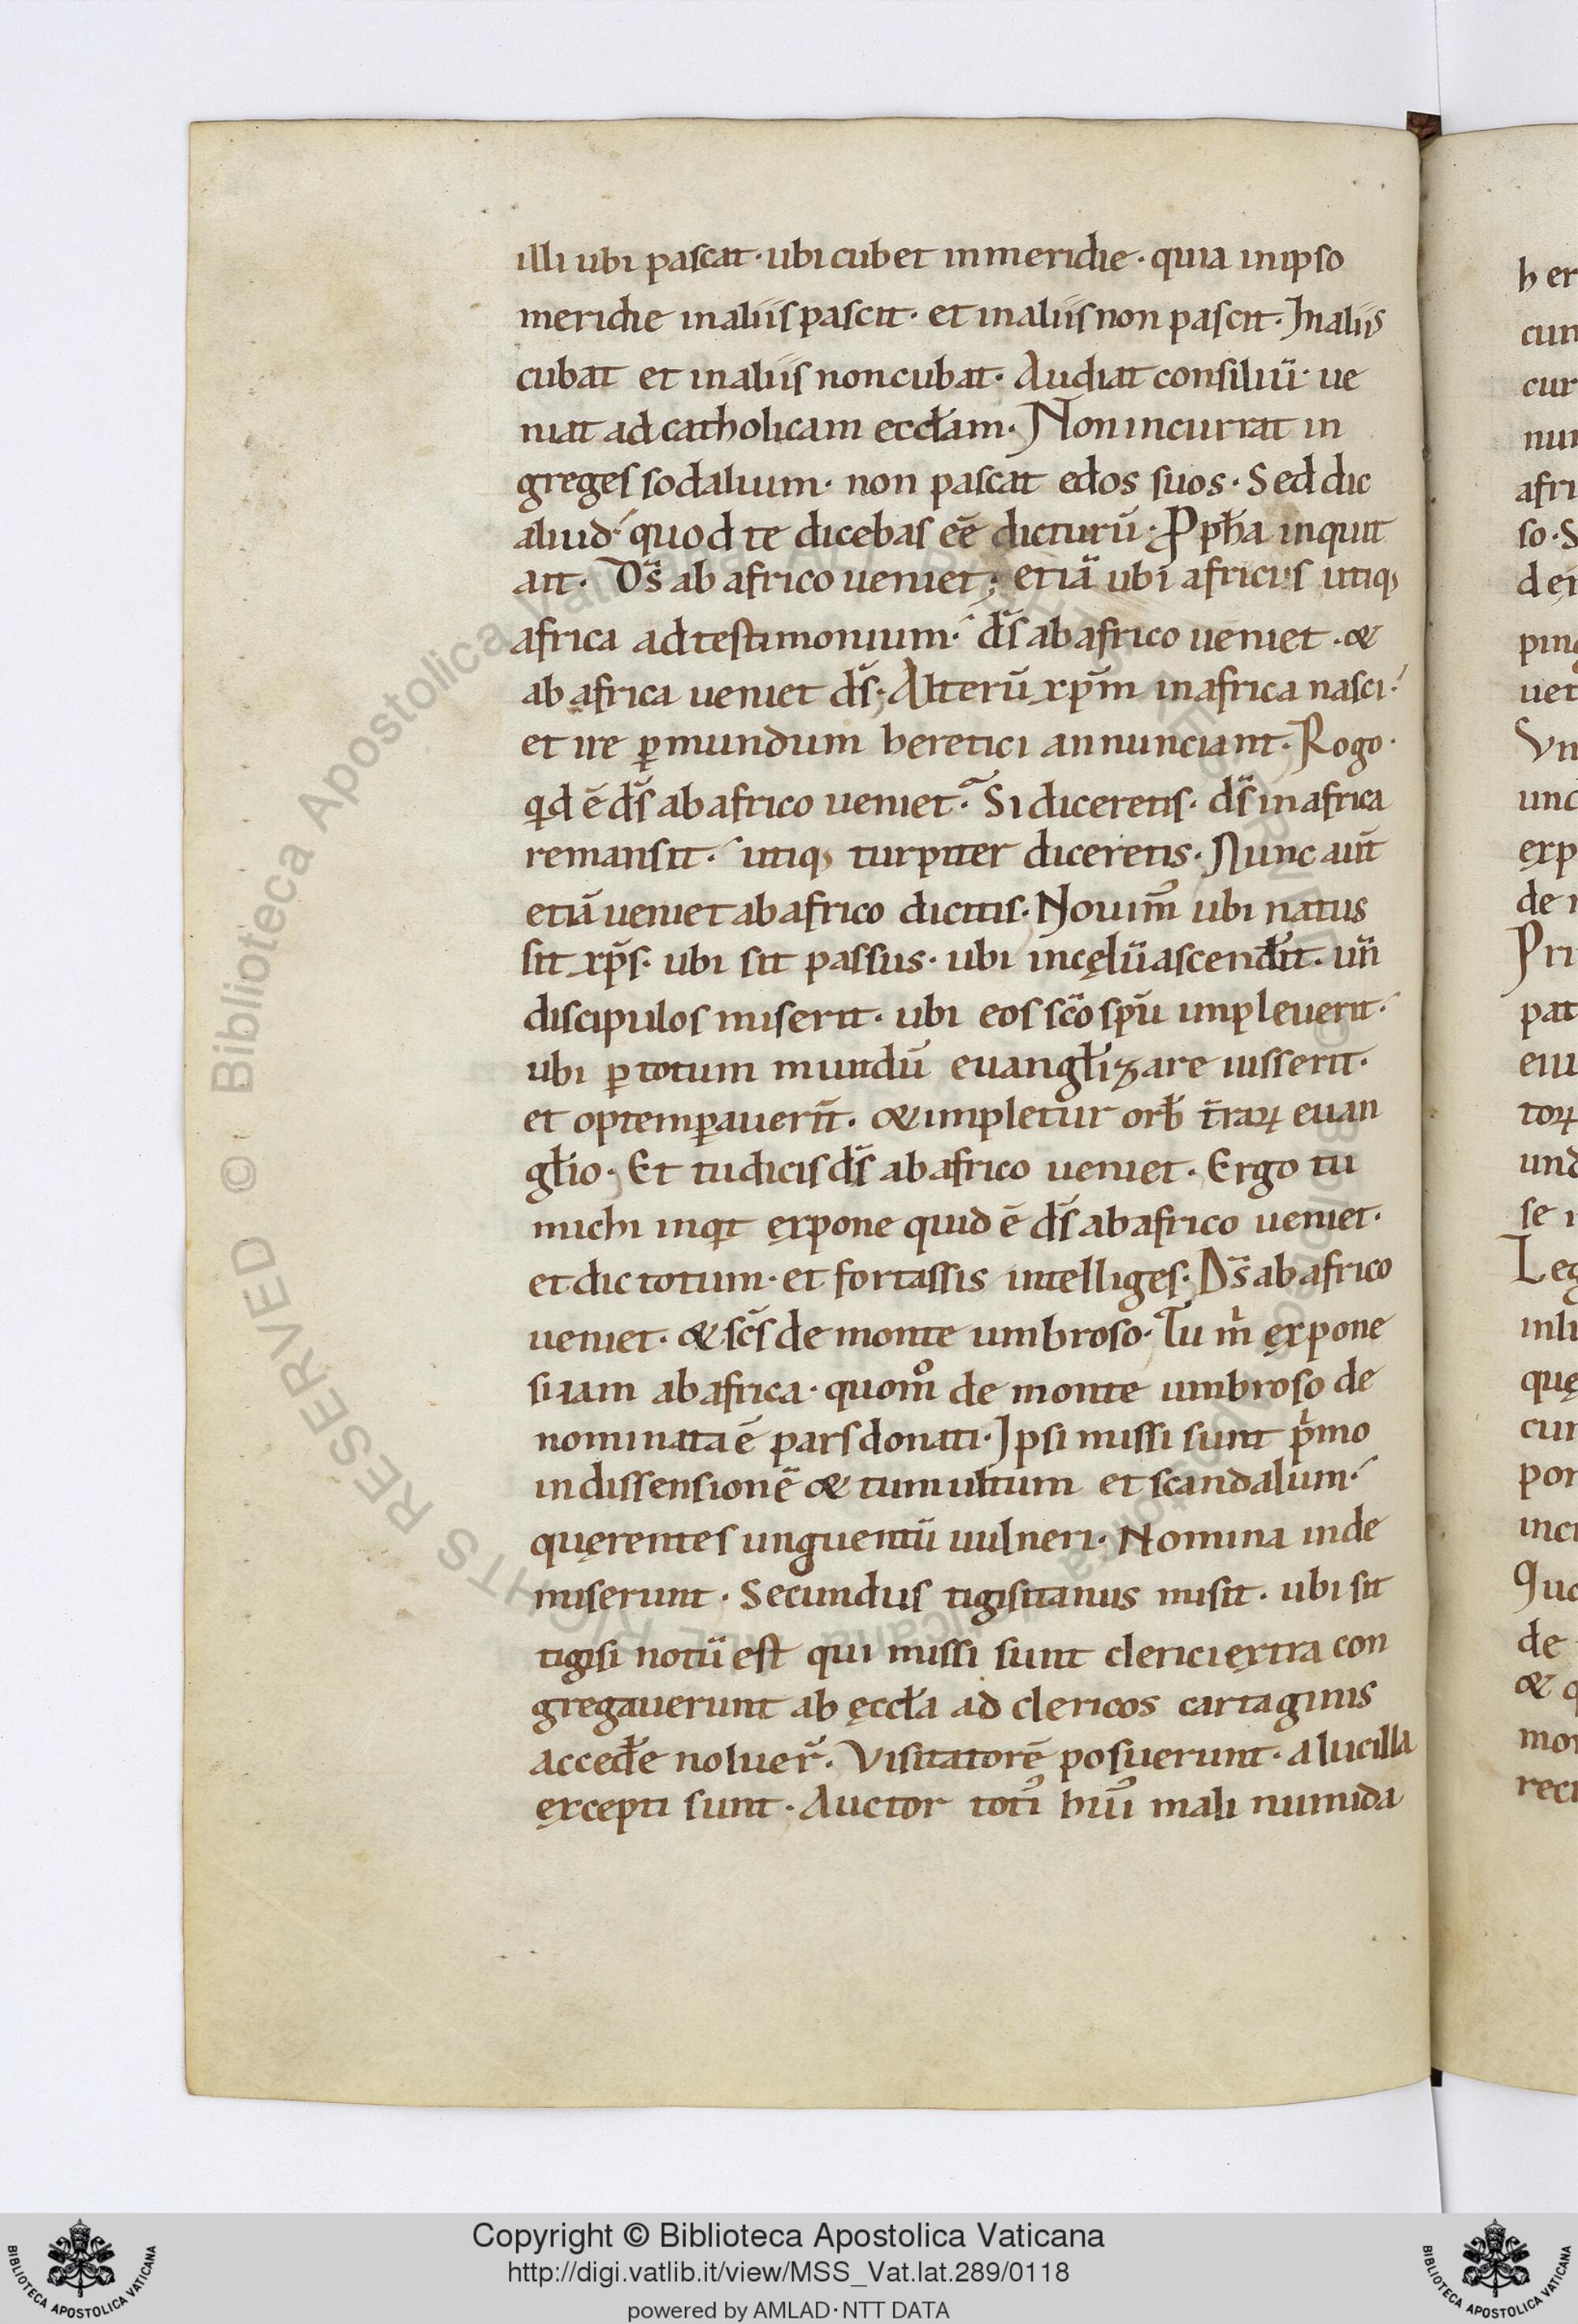 illi ubi pascat · ubi cubet in meridie · quia in ipso
meridie in aliis pascit · et in aliis non pascit · In aliis
cubat et in aliis non cubat · Audiat consiliū · ue
niat ad catholicam eccłam · Non incurrat in
greges sodalium · non pascat edos suos · Sed dic
aliud · quod te dicebas eē dicturū · Ppħa inquit
ait · D̄s ab africo ueniet ; etiā ubi africus utiq;
africa ad testimonium · d̄s ab africo ueniet · &
ab africa ueniet d̄s ; Alterū xp̄m in africa nasci ·
et ire ꝑ mundum heretici annunciant · Rogo ·
qd ē d̄s ab africo ueniet · Si diceretis · d̄s in africa
remansit · utiq; turpiter diceretis · Nunc aūt
etiā ueniet ab africo dicitis · Nouim᷒ ubi natus
sit xp̄s · ubi sit passus · ubi in cęlū ascendit · un̄
discipulos miserit · ubi eos sc̄o sp̄u impleuerit ·
ubi ꝑ totum mundū euangłizare iusserit ·
et optemꝑauerīt · & impletur orb̄ t̄raꝝ euan
głio · Et tu dicis d̄s ab africo ueniet · Ergo tu
michi inqt ęxpone quid ē d̄s ab africo ueniet ·
et dic totum · et fortassis intelliges · D̄s ab africo
ueniet · & sc̄s de monte umbroso · Tu m̄ ęxpone
si iam ab africa · quom̊ de monte umbroso de
nominata ē pars donati · Ipsi missi sunt p̄mo
in dissensionē & tumultum et scandalum ·
quęrentes unguentū uulneri · Nomina inde
miserunt · Secundus tigisitanus misit · ubi sit
tigisi notū est qui missi sunt clerici ęxtra con
gregauerunt ab ęccła ad clericos cartaginis
accedēe noluer̄ · Visitatorē posuerunt · a lucilla
ęxcepti sunt · Auctor toti᷒ hui᷒ mali numida
h er
cun
cur
nun
afri
so · S
dei
ping
uet
Vn
und
ęxp
de
Pri
pat
eiu
toꝝ
und
se
Leg
inli
quę
cur
por
inci
Quo
de
&
mor
reci
BIBLIOTECA APOSTOLICA VATICANA
Copyright © Biblioteca Apostolica Vaticana
http://digi.vatlib.it/view/MSS_Vat.lat.289/0118
powered by AMLAD·NTT DATA
BIBLIOTECA APOSTOLICA VATICANA